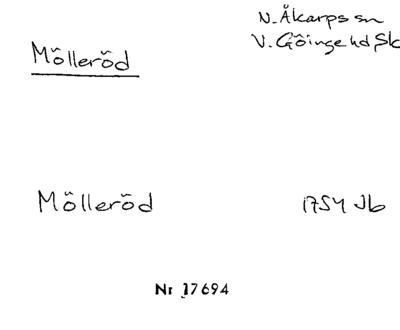 Mölleröd
N. Åkarps sn
V. Göinge hd Sk
Mölleröd
1754 Jb
Nr 17694